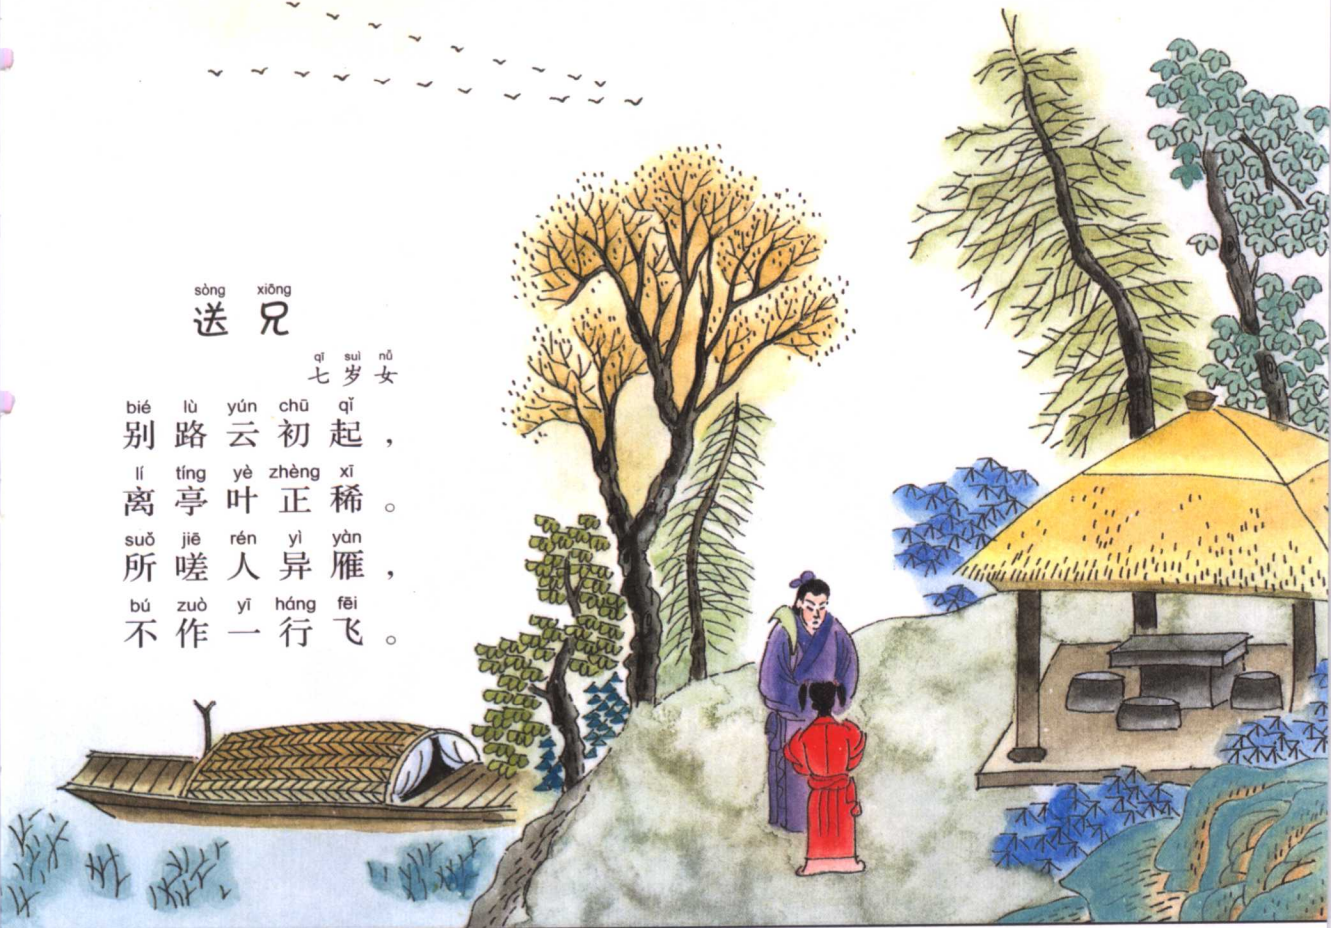 sòng xiōng
送 兄
qī suì nǚ
七 岁 女
bié lù yún chū qǐ
别 路 云 初 起 ，
lí tíng yè zhèng xī
离 亭 叶 正 稀 。
suǒ jiē rén yì yàn
所 嗟 人 异 雁 ，
bú zuò yī háng fēi
不 作 一 行 飞 。